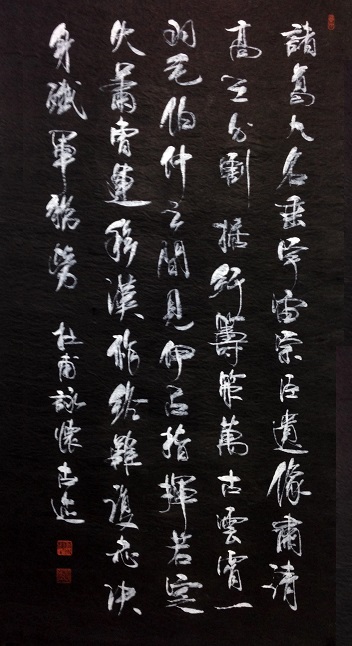 諸葛大名垂宇宙宗臣遺像肅清
高三分割據紆籌策萬古雲霄一
羽毛伯仲之間見伊呂指揮若定
失蕭曹運移漢祚終難復志決
身殲軍務勞 杜甫詠懷古迹